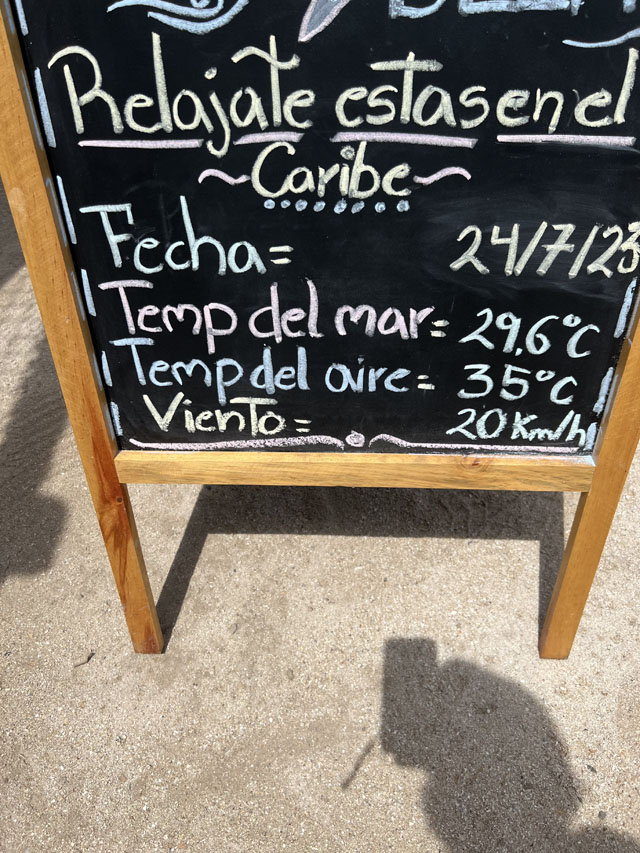 Relajate estas en el
~ Caribe ~
Fecha= 24/7/23
Temp del mar= 29,6°C
Temp del aire= 35°C
Viento= 20 Km/h